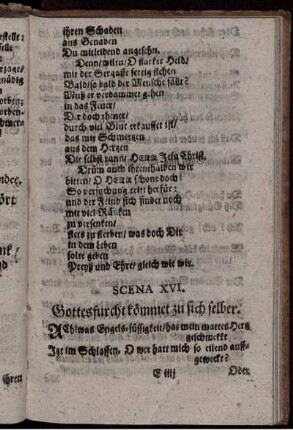 ihren Schaden
aus Genaden
Du mitleidend angesehn.
Denn / wilstu / O starker Held /
mit der
Baldso bald der Mensche fällt?
Muß er verdammet gehen
in das Feuer /
Der doch theuer /
durch viel Blut erkauffet ist /
das mit Schmertzen
aus dem Hertzen
Dir selbst rann / HErr Jesu Christ.
Drüm auch ihrenthalben wir
bitten / O HErr schone doch!
So
und der Feind sich findet noch
mit viel Räncken
zu versenken /
stets zu sterben / was doch Dir
in dem Leben
solte geben
Preyß und Ehre / gleich wie wir.
SCENA XVI.
Gottesfurcht kömmet zu sich selber.
ACh! was Engels-süssigkeit / hat mein mattes Hertz
geschmeckt
Itzt im Schlaffen. O wer hatt mich so eilend auff-
geweckt?
E iiij
Oder
ihren